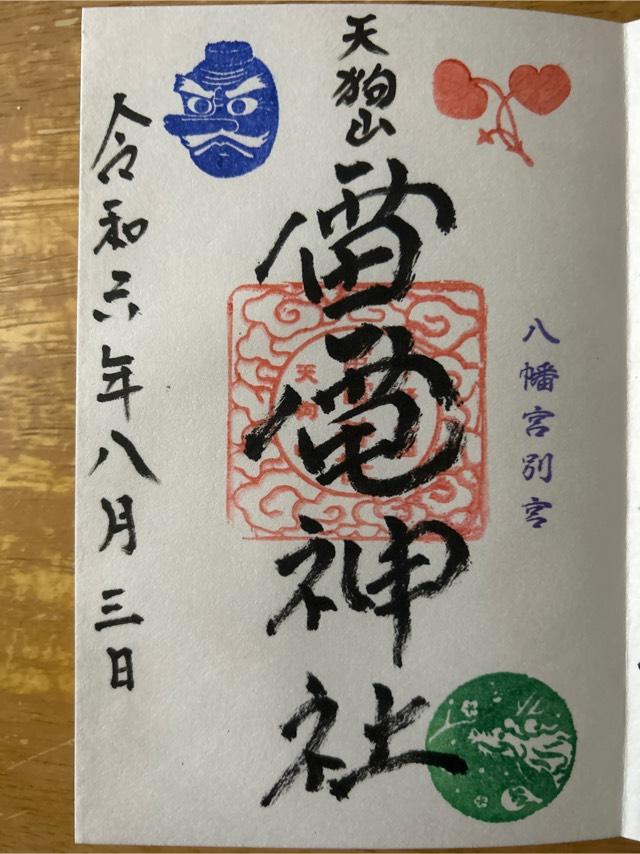 八幡宮別宮
天狗山
雷電神社
令和六年八月三日